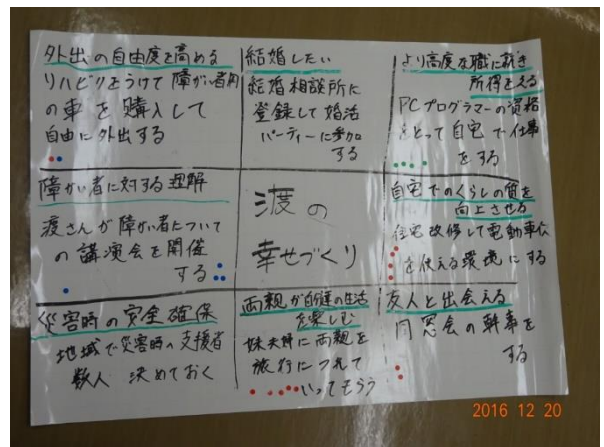 外出の自由度を高める
リハビリをうけて障がい者用
の車を購入して
自由に外出する
結婚したい
結婚相談所に
登録して婚活
パーティーに参加
する
より高度な職に就き
所得をえる
PCプログラマーの資格
をとって自宅で仕事
をする
障がい者に対する理解
渡さんが障がい者について
の講演会を開催
する
渡の
幸せづくり
自宅でのくらしの質を
向上させる
住宅改修して電動車イス
を使える環境にする
災害時の安全確保
地域で災害時の支援者
数人 決めておく
両親が自分達の生活
を楽しむ
妹夫婦に両親を
旅行につれて
いってもらう
友人と出会える
同窓会の幹事を
する
2016 12 20